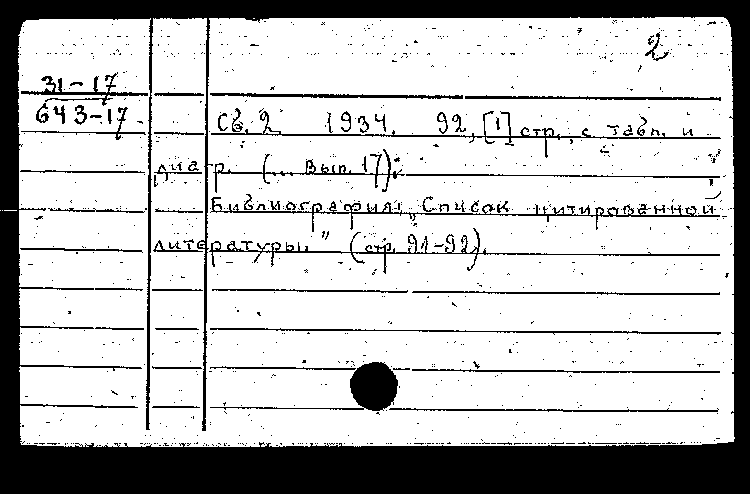 2
31-17
643-17
Сб. 2 1934. 92, [1] стр., с табл. и
диагр. (... Вып. 17).
Библиография: „Список цитированной
литературы" (стр. 91-92).